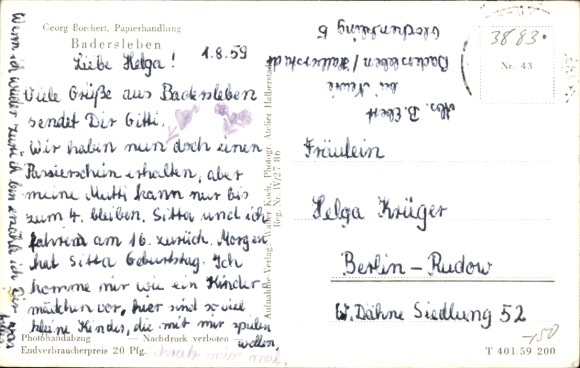 Georg Borchert, Papierhandlung
Badersleben
1.8.59
Liebe Helga!
Viele Grüße aus Badersleben
sendet Dir Gitti.
Wir haben nun doch einen
Passierschein erhalten, aber
meine Mutti kann nur bis
zum 4. bleiben. Sitta und ich
fahren am 16. zurück. Morgen
hat Sitta Geburtstag. Ich
komme mir wie ein Kinder
mädchen vor, hier sind so viel
kleine Kinder, die mit mir spielen
wollen.
Wenn ich wieder zurück bin erzähle ich Dir was
Photohandabzug — Nachdruck verboten —
Endverbraucherpreis 20 Pfg.
schreib mir mal
Aufnahme-Verlag: Walter Koch, Photogr. Atelier Halberstadt
Reg.-Nr. IV/27/86
Abs. B. Ebert
bei
Badersleben/Halberstadt
5
3883.
Nr. 43
Fräulein
Helga Krüger
Berlin-Rudow
W. Dähne Siedlung 52
-150
T 401 59 200